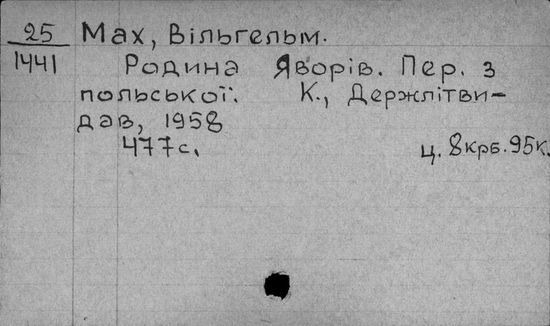 25 Мах, Вільгельм.
1441 Родина Яворів. Пер. з
польської. К., Держлітви-
дав, 1958
477с. ц. 8крб.95к.